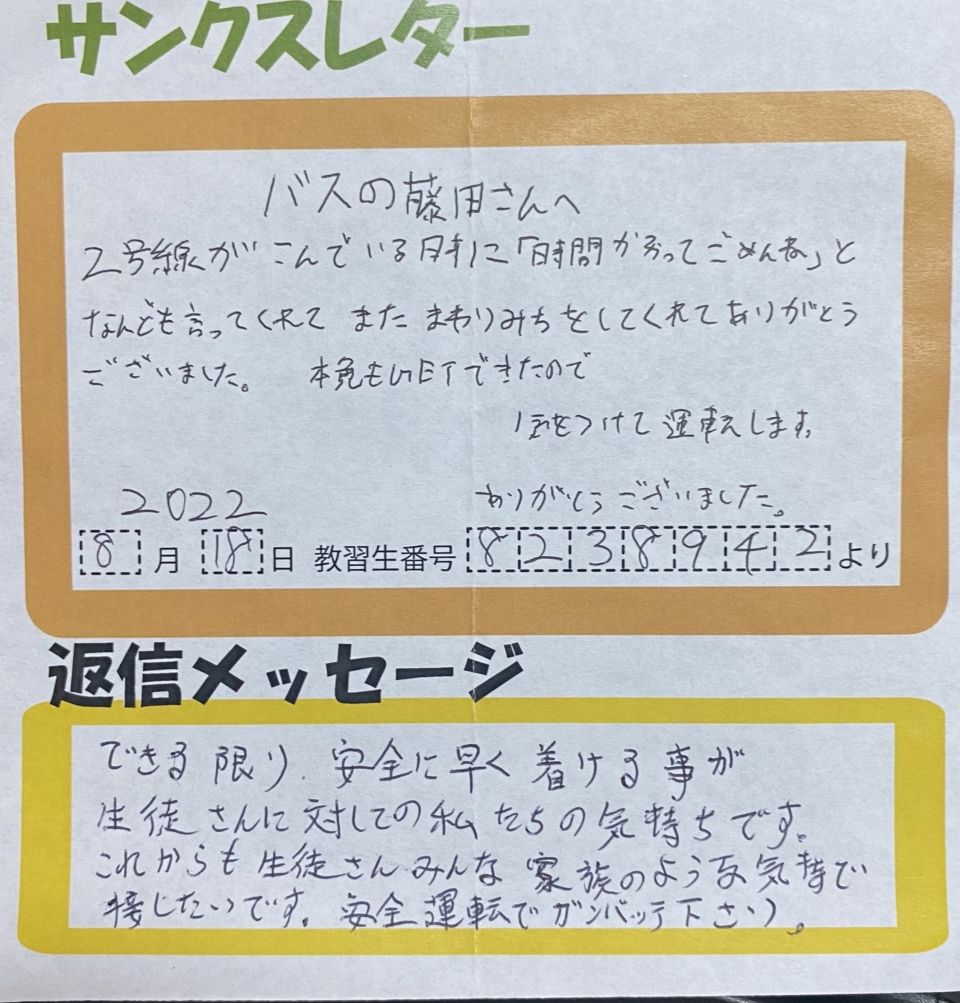 サンクスレター
バスの藤田さんへ
2号線がこんでいる時に「時間かかってごめんね」と
なんども言ってくれて またまわりみちをしてくれてありがとう
ございました。 本免もGETできたので
気をつけて運転します。
2022
ありがとうございました。
8月18日 教習生番号 8238942より
返信メッセージ
できる限り、安全に早く着ける事が
生徒さんに対しての私たちの気持ちです。
これからも生徒さんみんな家族のような気持で
接したいです。安全運転でガンバッテ下さい。